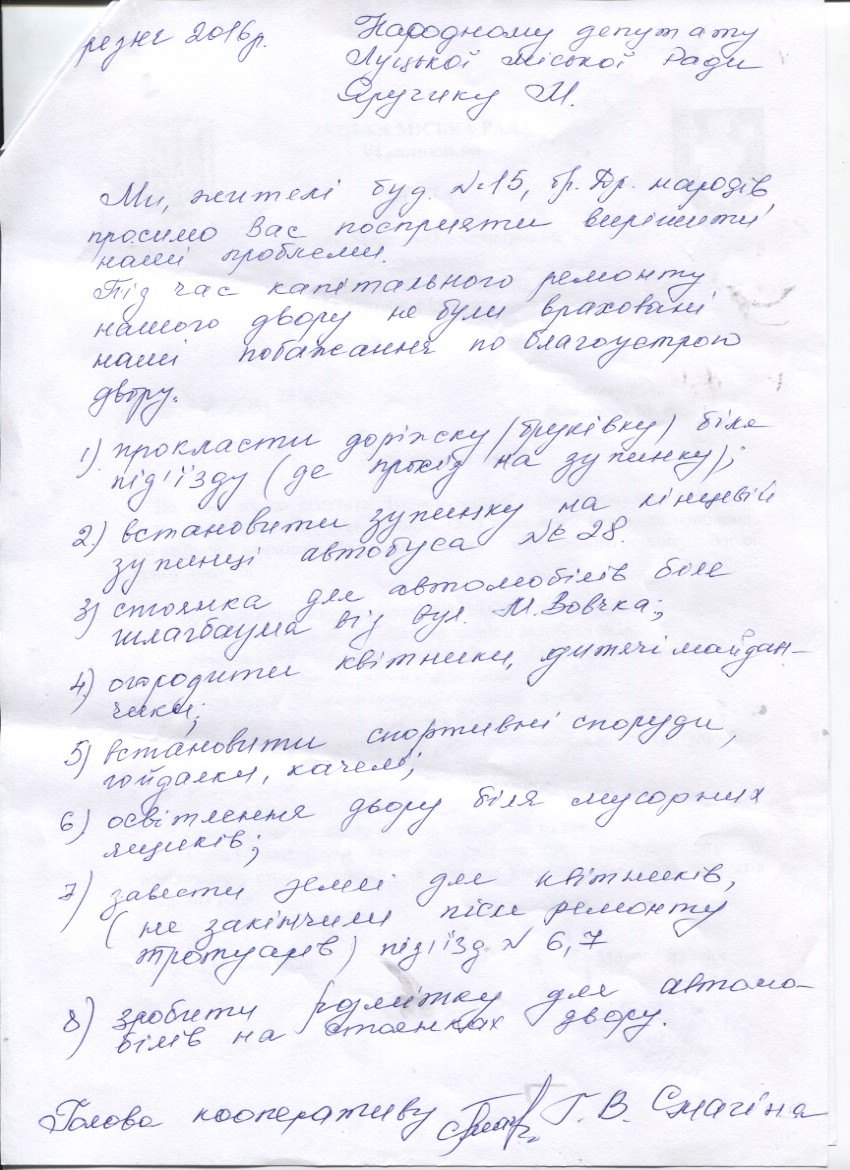 резня 2016р.
Народному депутату
Луцької міської Ради
Яручику М.
Ми, жителі буд. №15, бр. Др. народів,
просимо Вас посприяти вирішити
наші проблеми.
Під час капітального ремонту
нашого двору не були враховані
наші побажання по благоустрою
двору.
1) прокласти доріжку (бруківку) біля
під'їзду (де прохід на зупинку);
2) встановити зупинку на кінцевій
зупинці автобуса № 28.
3) стоянка для автомобілів біля
шлагбаума від вул. М. Вовчка;
4) огородити квітники, дитячі майдан-
чики;
5) встановити спортивні споруди,
гойдалки, качелі;
6) освітлення двору біля мусорних
ящиків;
7) завести землі для квітників,
(не закінчили після ремонту
тротуарів) під'їзд № 6, 7
8) зробити розмітку для автомо-
білів на стоянках двору.
Голова кооперативу Г. В. Смагіна